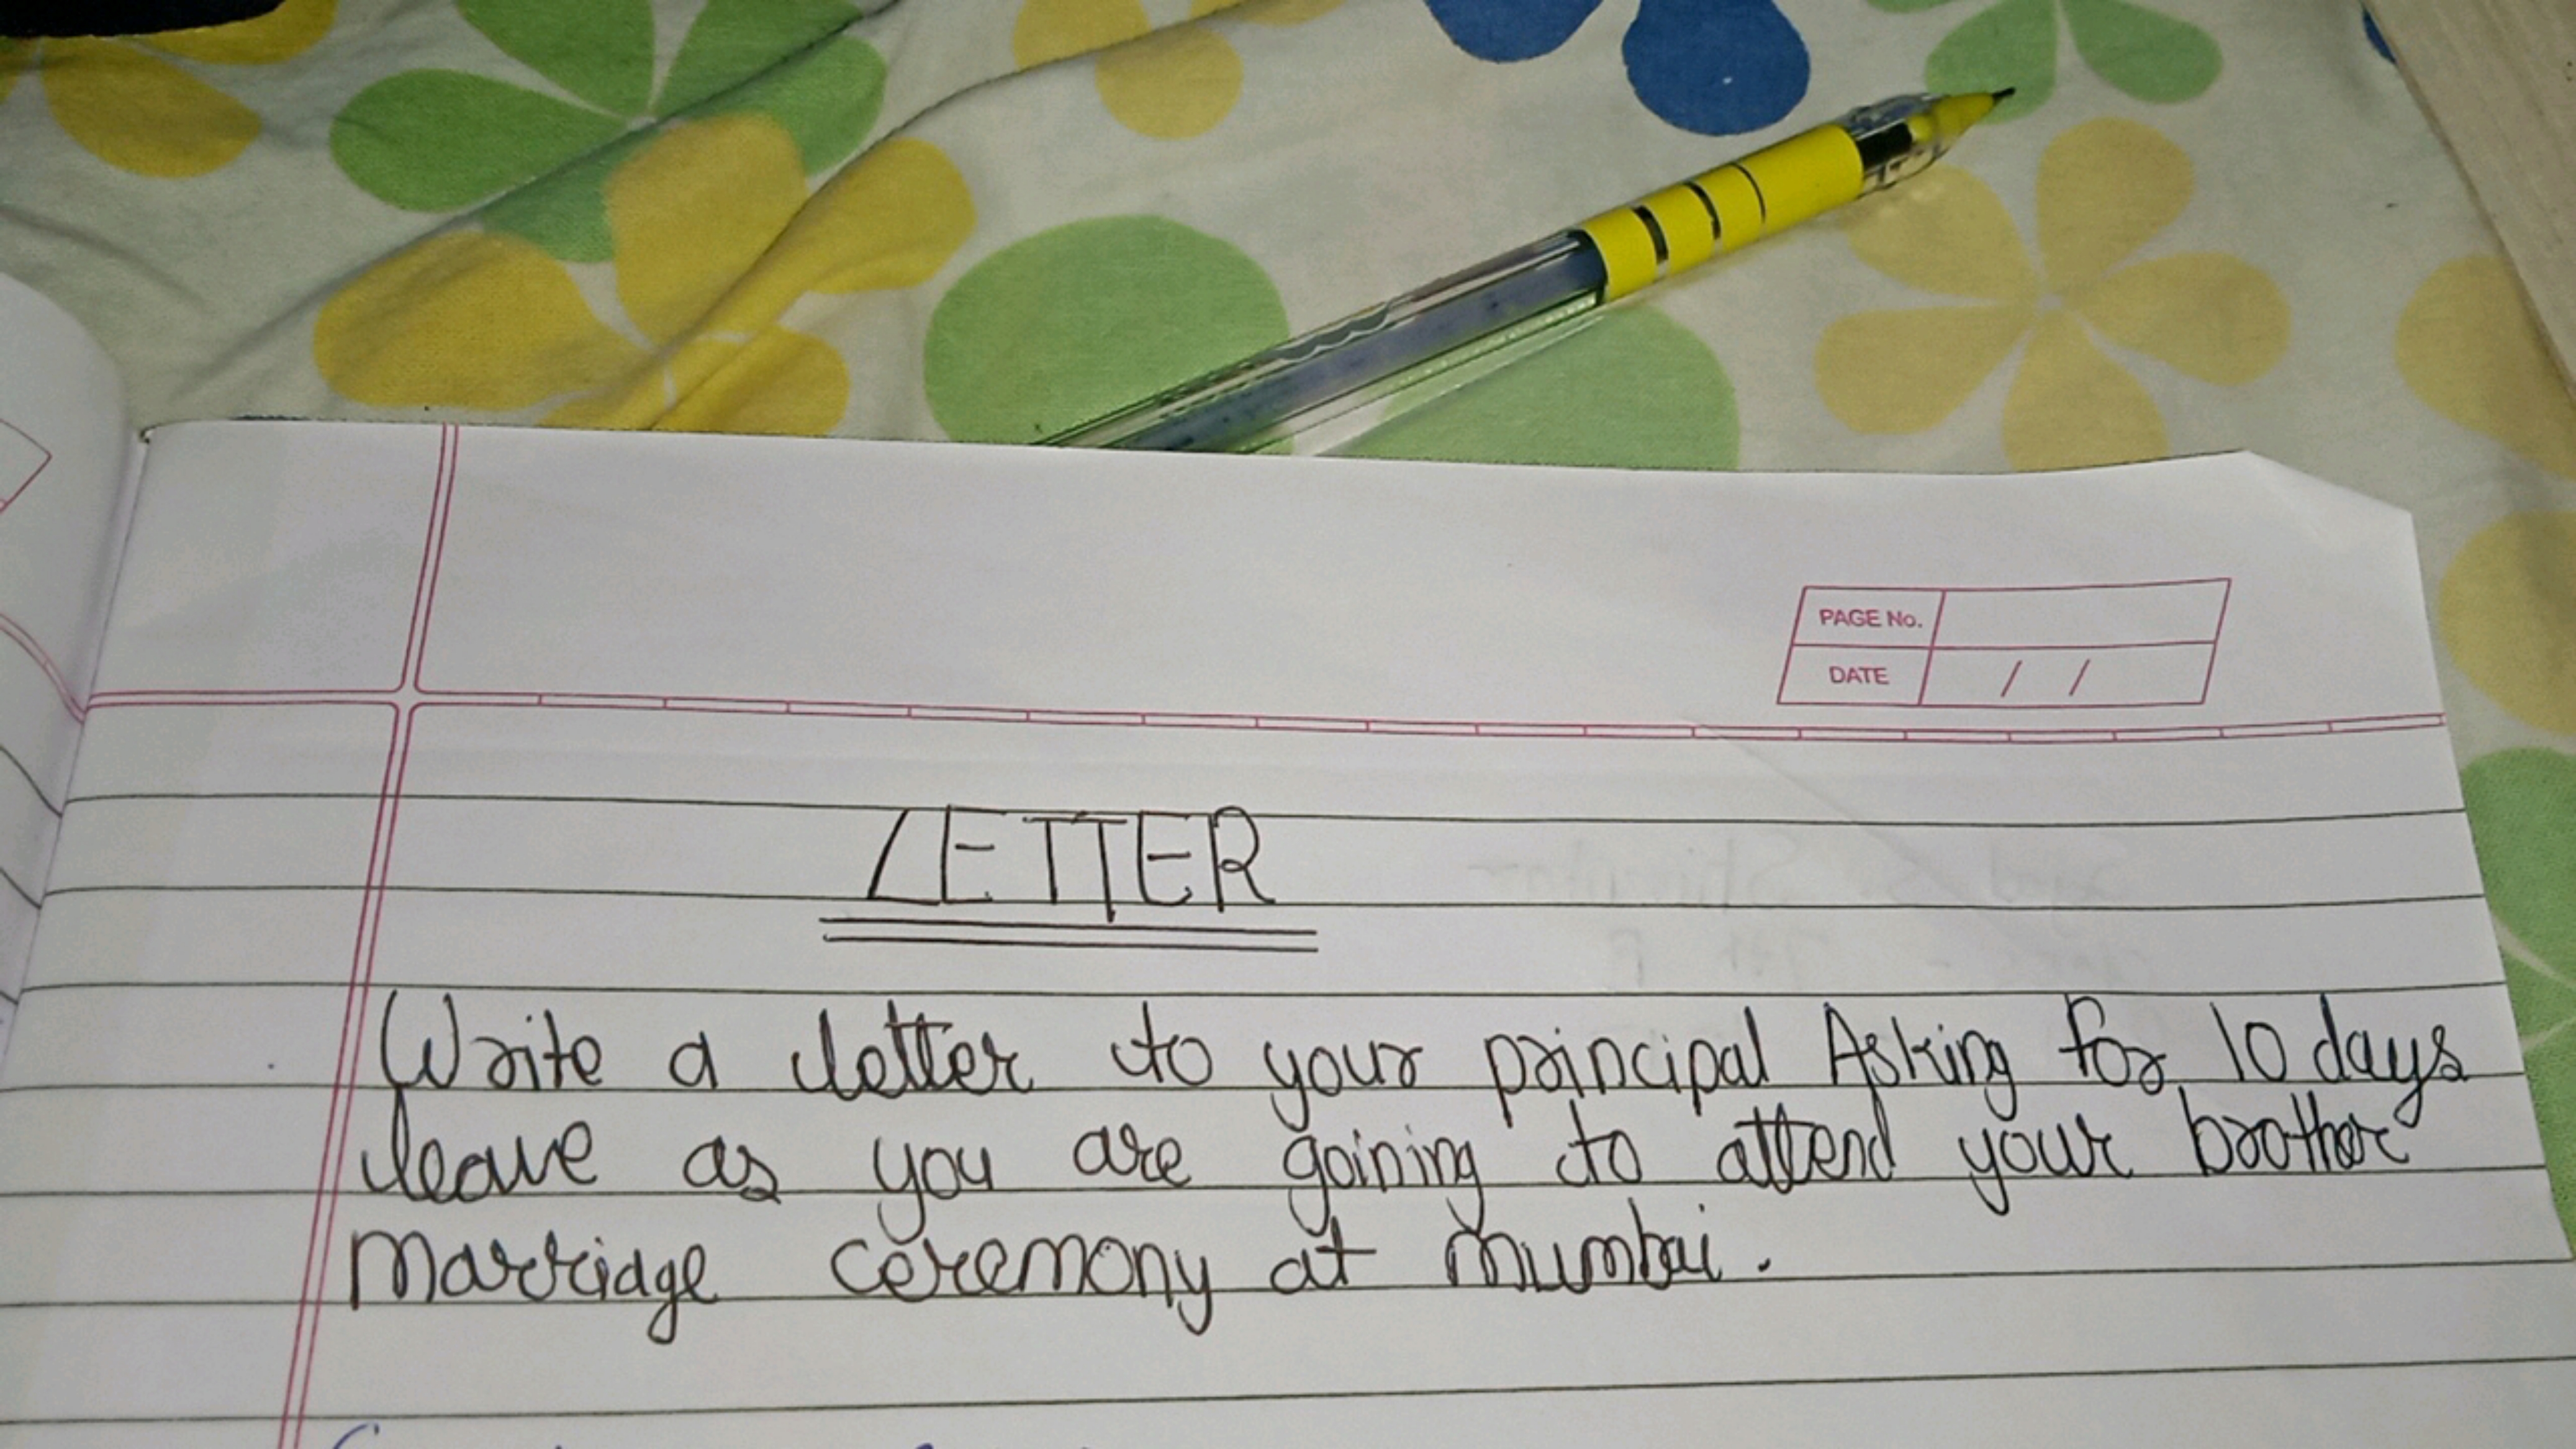 PAGE No.
DATE / /
LETTER
Write a letter to your principal Asking for 10 days
leave as you are goining to attend your brother
marriage ceremony at mumbai.